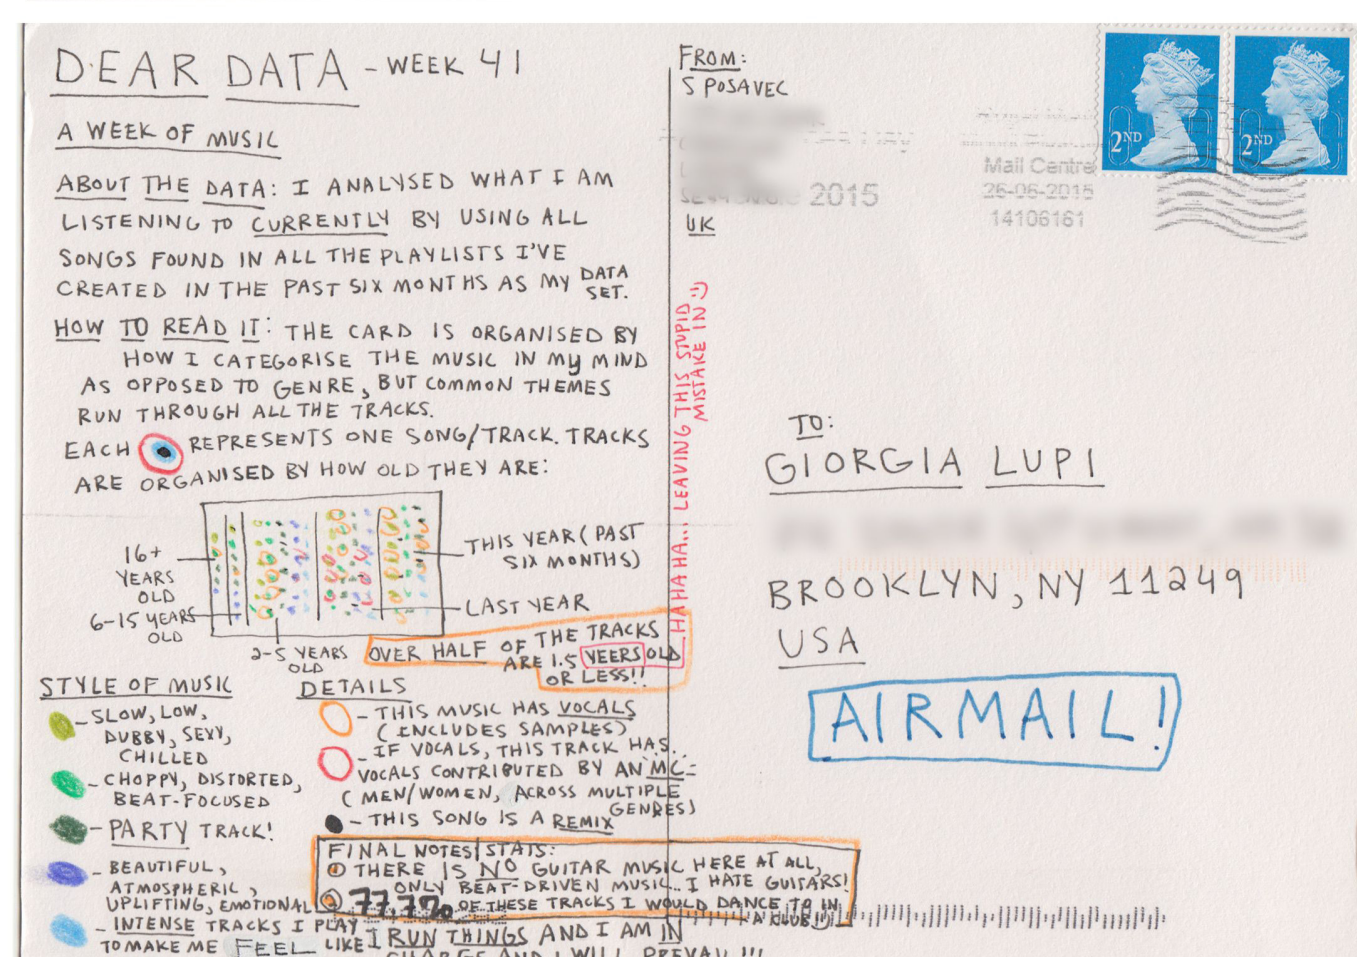 DEAR DATA - WEEK 41
A WEEK OF MUSIC
ABOUT THE DATA: I ANALYSED WHAT I AM
LISTENING TO CURRENTLY BY USING ALL
SONGS FOUND IN ALL THE PLAYLISTS I'VE
CREATED IN THE PAST SIX MONTHS AS MY DATA
SET.
HOW TO READ IT: THE CARD IS ORGANISED BY
HOW I CATEGORISE THE MUSIC IN MY MIND
AS OPPOSED TO GENRE, BUT COMMON THEMES
RUN THROUGH ALL THE TRACKS.
EACH REPRESENTS ONE SONG/TRACK. TRACKS
ARE ORGANISED BY HOW OLD THEY ARE:
16+
YEARS
OLD
6-15 YEARS
OLD
2-5 YEARS
OLD
THIS YEAR (PAST
SIX MONTHS)
LAST YEAR
OVER HALF OF THE TRACKS
ARE 1.5 YEERS OLD
OR LESS!!
HAHAHA... LEAVING THIS STUPID
MISTAKE IN :)
STYLE OF MUSIC
- SLOW, LOW,
DUBBY, SEXY,
CHILLED
- CHOPPY, DISTORTED,
BEAT-FOCUSED
- PARTY TRACK!
- BEAUTIFUL,
ATMOSPHERIC,
UPLIFTING, EMOTIONAL
- INTENSE TRACKS I PLAY
TO MAKE ME FEEL LIKE I RUN THINGS AND I AM IN
CHARGE AND I WILL PREVAIL!!!
DETAILS
- THIS MUSIC HAS VOCALS
(INCLUDES SAMPLES)
- IF VOCALS, THIS TRACK HAS
VOCALS CONTRIBUTED BY AN MC
(MEN/WOMEN, ACROSS MULTIPLE
GENRES)
- THIS SONG IS A REMIX
FINAL NOTES/STATS:
① THERE IS NO GUITAR MUSIC HERE AT ALL,
ONLY BEAT-DRIVEN MUSIC... I HATE GUITARS!
② 77.7% OF THESE TRACKS I WOULD DANCE TO IN
A CLUB!!
FROM:
S POSAVEC
2015
UK
Mail Centre
26-06-2015
14106161
2ND
2ND
TO:
GIORGIA LUPI
BROOKLYN, NY 11249
USA
AIRMAIL!